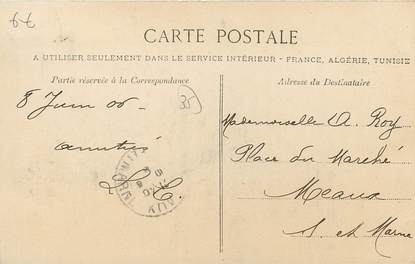 6€
CARTE POSTALE
A UTILISER SEULEMENT DANS LE SERVICE INTÉRIEUR - FRANCE, ALGÉRIE, TUNISIE
Partie réservée à la Correspondance
Adresse du Destinataire
8 Juin 06
35
amitiés
Mademoiselle A. Roy
Place du Marché
Meaux
S. et Marne